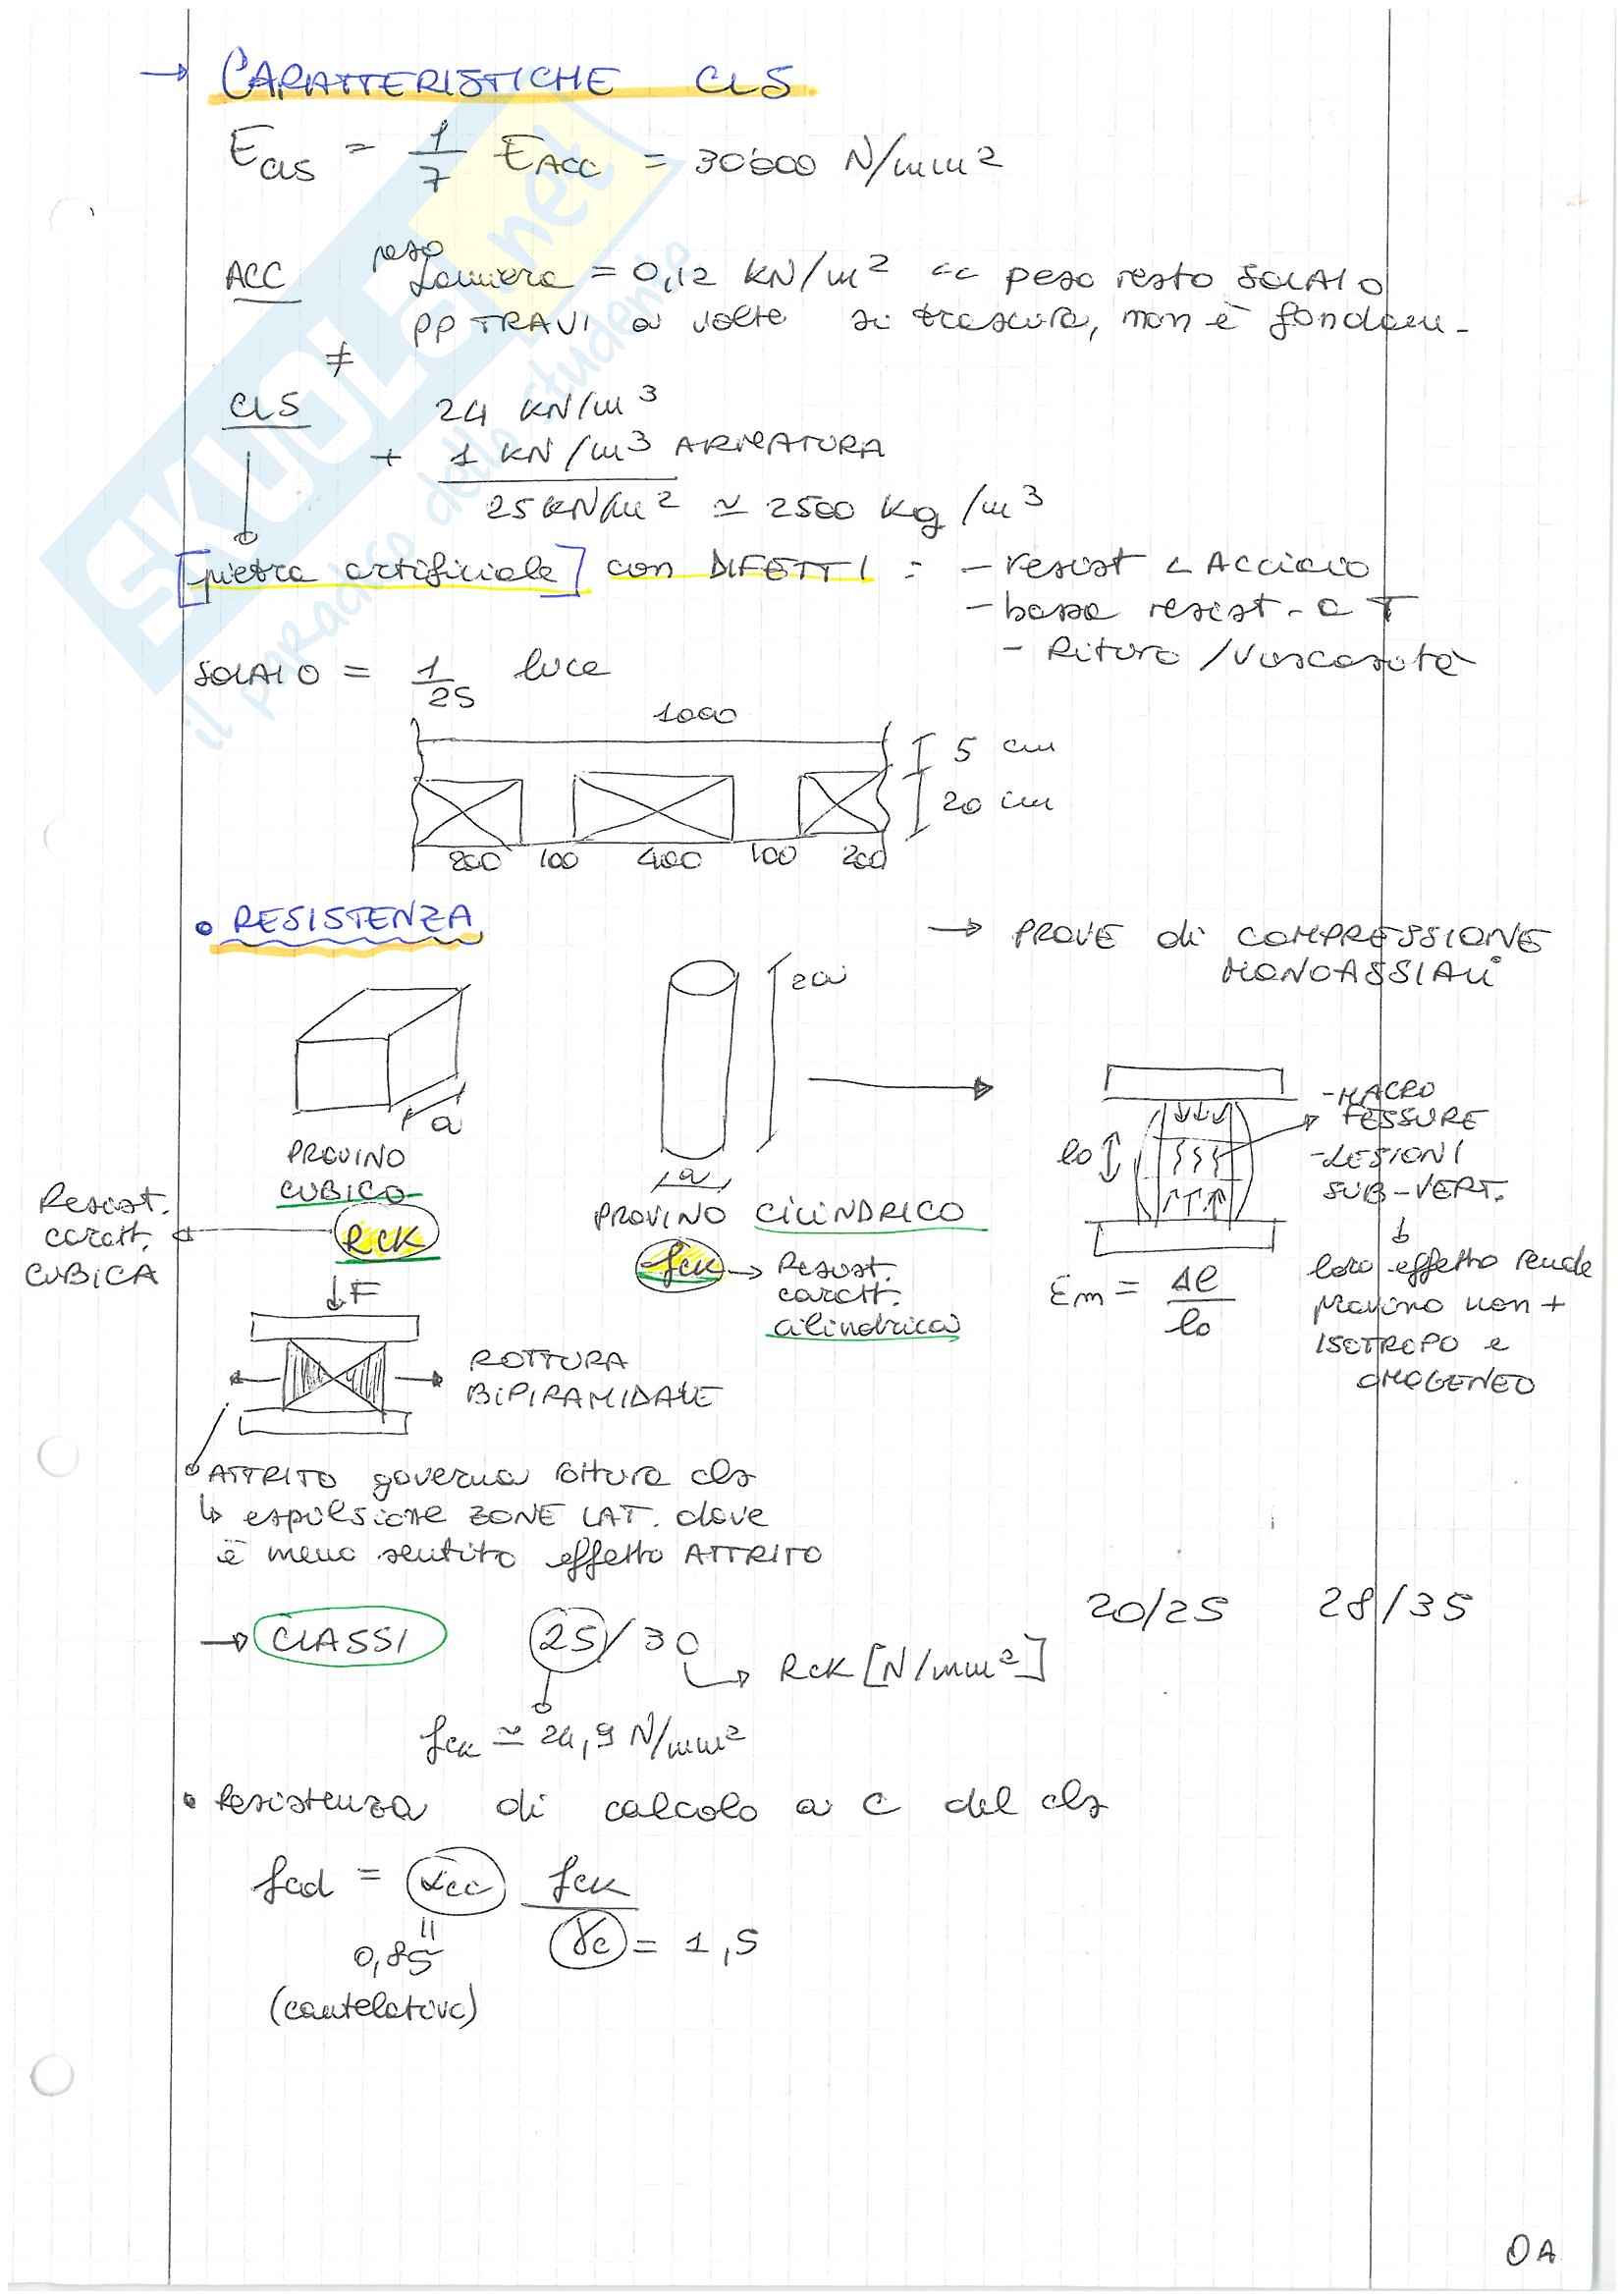 → CARATTERISTICHE CLS
Ecls = 1/7 EACC = 30'000 N/mm²
ACC peso lamiera = 0,12 KN/m² << peso resto SOLAIO
PP TRAVI a volte si trascura, non è fondam.
≠
CLS 24 KN/m³
+ 1 KN/m³ ARMATURA
25 KN/m² ≃ 2500 Kg/m³
[pietra artificiale] con DIFETTI : - resist < Acciaio
- bassa resist. a T
- Ritiro / Viscosità
SOLAIO = 1/25 luce
1000
5 cm
20 cm
200 100 400 100 200
• RESISTENZA
→ PROVE di COMPRESSIONE
MONOASSIALI
a
PROVINO
CUBICO
RcK
Resist.
caratt.
CUBICA
2a
a
PROVINO CILINDRICO
fck → Resist.
caratt.
cilindrica
l0
- MACRO
FESSURE
- LESIONI
SUB-VERT.
loro effetto rende
provino non +
ISOTROPO e
OMOGENEO
Em = Δl / l0
F
ROTTURA
BIPIRAMIDALE
ATTRITO governa rottura cls
↳ espulsione ZONE LAT. dove
è meno sentito effetto ATTRITO
→ CLASSI 25/30 20/25 28/35
RcK [N/mm²]
fck ≃ 24,9 N/mm²
• Resistenza di calcolo a C del cls
fcd = αcc fck / γc = 1,5
0,85
(cautelativo)
OA
SKUOLA.net
il paradiso dello studente